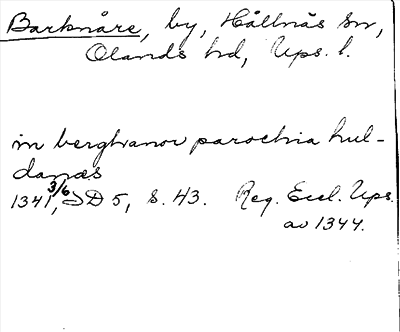 Barknåre, by, Hållnäs sn,
Olands hd, Ups. l.
in berghvanor parochia hul-
danæs
1341 3/6, SD 5, s. 43. Reg. Eccl. Ups.
av 1344.